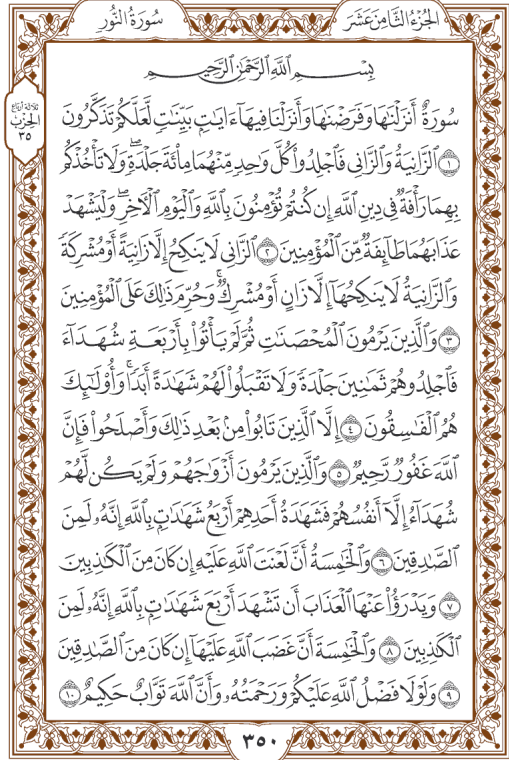 الجُزْءُ الثَّامِنَ عَشَرَ
سُورَةُ النُّور
ثلاثة أرباع
الحِزب
٣٥
بِسْمِ ٱللَّهِ ٱلرَّحْمَٰنِ ٱلرَّحِيمِ
سُورَةٌ أَنزَلْنَٰهَا وَفَرَضْنَٰهَا وَأَنزَلْنَا فِيهَآ ءَايَٰتٍۭ بَيِّنَٰتٍ لَّعَلَّكُمْ تَذَكَّرُونَ
١ ٱلزَّانِيَةُ وَٱلزَّانِى فَٱجْلِدُوا۟ كُلَّ وَٰحِدٍ مِّنْهُمَا مِا۟ئَةَ جَلْدَةٍ ۖ وَلَا تَأْخُذْكُم
بِهِمَا رَأْفَةٌ فِى دِينِ ٱللَّهِ إِن كُنتُمْ تُؤْمِنُونَ بِٱللَّهِ وَٱلْيَوْمِ ٱلْأَخِرِ ۖ وَلْيَشْهَدْ
عَذَابَهُمَا طَآئِفَةٌ مِّنَ ٱلْمُؤْمِنِينَ ٢ ٱلزَّانِى لَا يَنكِحُ إِلَّا زَانِيَةً أَوْ مُشْرِكَةً
وَٱلزَّانِيَةُ لَا يَنكِحُهَآ إِلَّا زَانٍ أَوْ مُشْرِكٌ ۚ وَحُرِّمَ ذَٰلِكَ عَلَى ٱلْمُؤْمِنِينَ
٣ وَٱلَّذِينَ يَرْمُونَ ٱلْمُحْصَنَٰتِ ثُمَّ لَمْ يَأْتُوا۟ بِأَرْبَعَةِ شُهَدَآءَ
فَٱجْلِدُوهُمْ ثَمَٰنِينَ جَلْدَةً وَلَا تَقْبَلُوا۟ لَهُمْ شَهَٰدَةً أَبَدًا ۚ وَأُو۟لَٰٓئِكَ
هُمُ ٱلْفَٰسِقُونَ ٤ إِلَّا ٱلَّذِينَ تَابُوا۟ مِنۢ بَعْدِ ذَٰلِكَ وَأَصْلَحُوا۟ فَإِنَّ
ٱللَّهَ غَفُورٌ رَّحِيمٌ ٥ وَٱلَّذِينَ يَرْمُونَ أَزْوَٰجَهُمْ وَلَمْ يَكُن لَّهُمْ
شُهَدَآءُ إِلَّآ أَنفُسُهُمْ فَشَهَٰدَةُ أَحَدِهِمْ أَرْبَعُ شَهَٰدَٰتٍۭ بِٱللَّهِ ۙ إِنَّهُۥ لَمِنَ
ٱلصَّٰدِقِينَ ٦ وَٱلْخَٰمِسَةُ أَنَّ لَعْنَتَ ٱللَّهِ عَلَيْهِ إِن كَانَ مِنَ ٱلْكَٰذِبِينَ
٧ وَيَدْرَؤُا۟ عَنْهَا ٱلْعَذَابَ أَن تَشْهَدَ أَرْبَعَ شَهَٰدَٰتٍۭ بِٱللَّهِ ۙ إِنَّهُۥ لَمِنَ
ٱلْكَٰذِبِينَ ٨ وَٱلْخَٰمِسَةَ أَنَّ غَضَبَ ٱللَّهِ عَلَيْهَآ إِن كَانَ مِنَ ٱلصَّٰدِقِينَ
٩ وَلَوْلَا فَضْلُ ٱللَّهِ عَلَيْكُمْ وَرَحْمَتُهُۥ وَأَنَّ ٱللَّهَ تَوَّابٌ حَكِيمٌ ١٠
٣٥٠